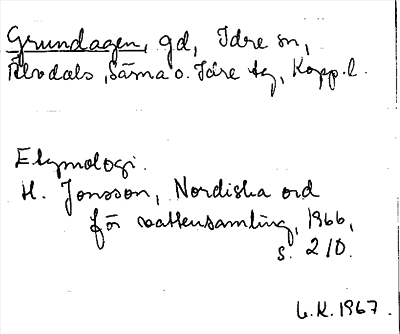 Grundagen, gd, Idre sn,
Älvdals, Särna o. Idre tg, Kopp. l.
Etymologi.
H. Jonsson, Nordiska ord
för vattensamling, 1966,
s. 210.
L.K. 1967.